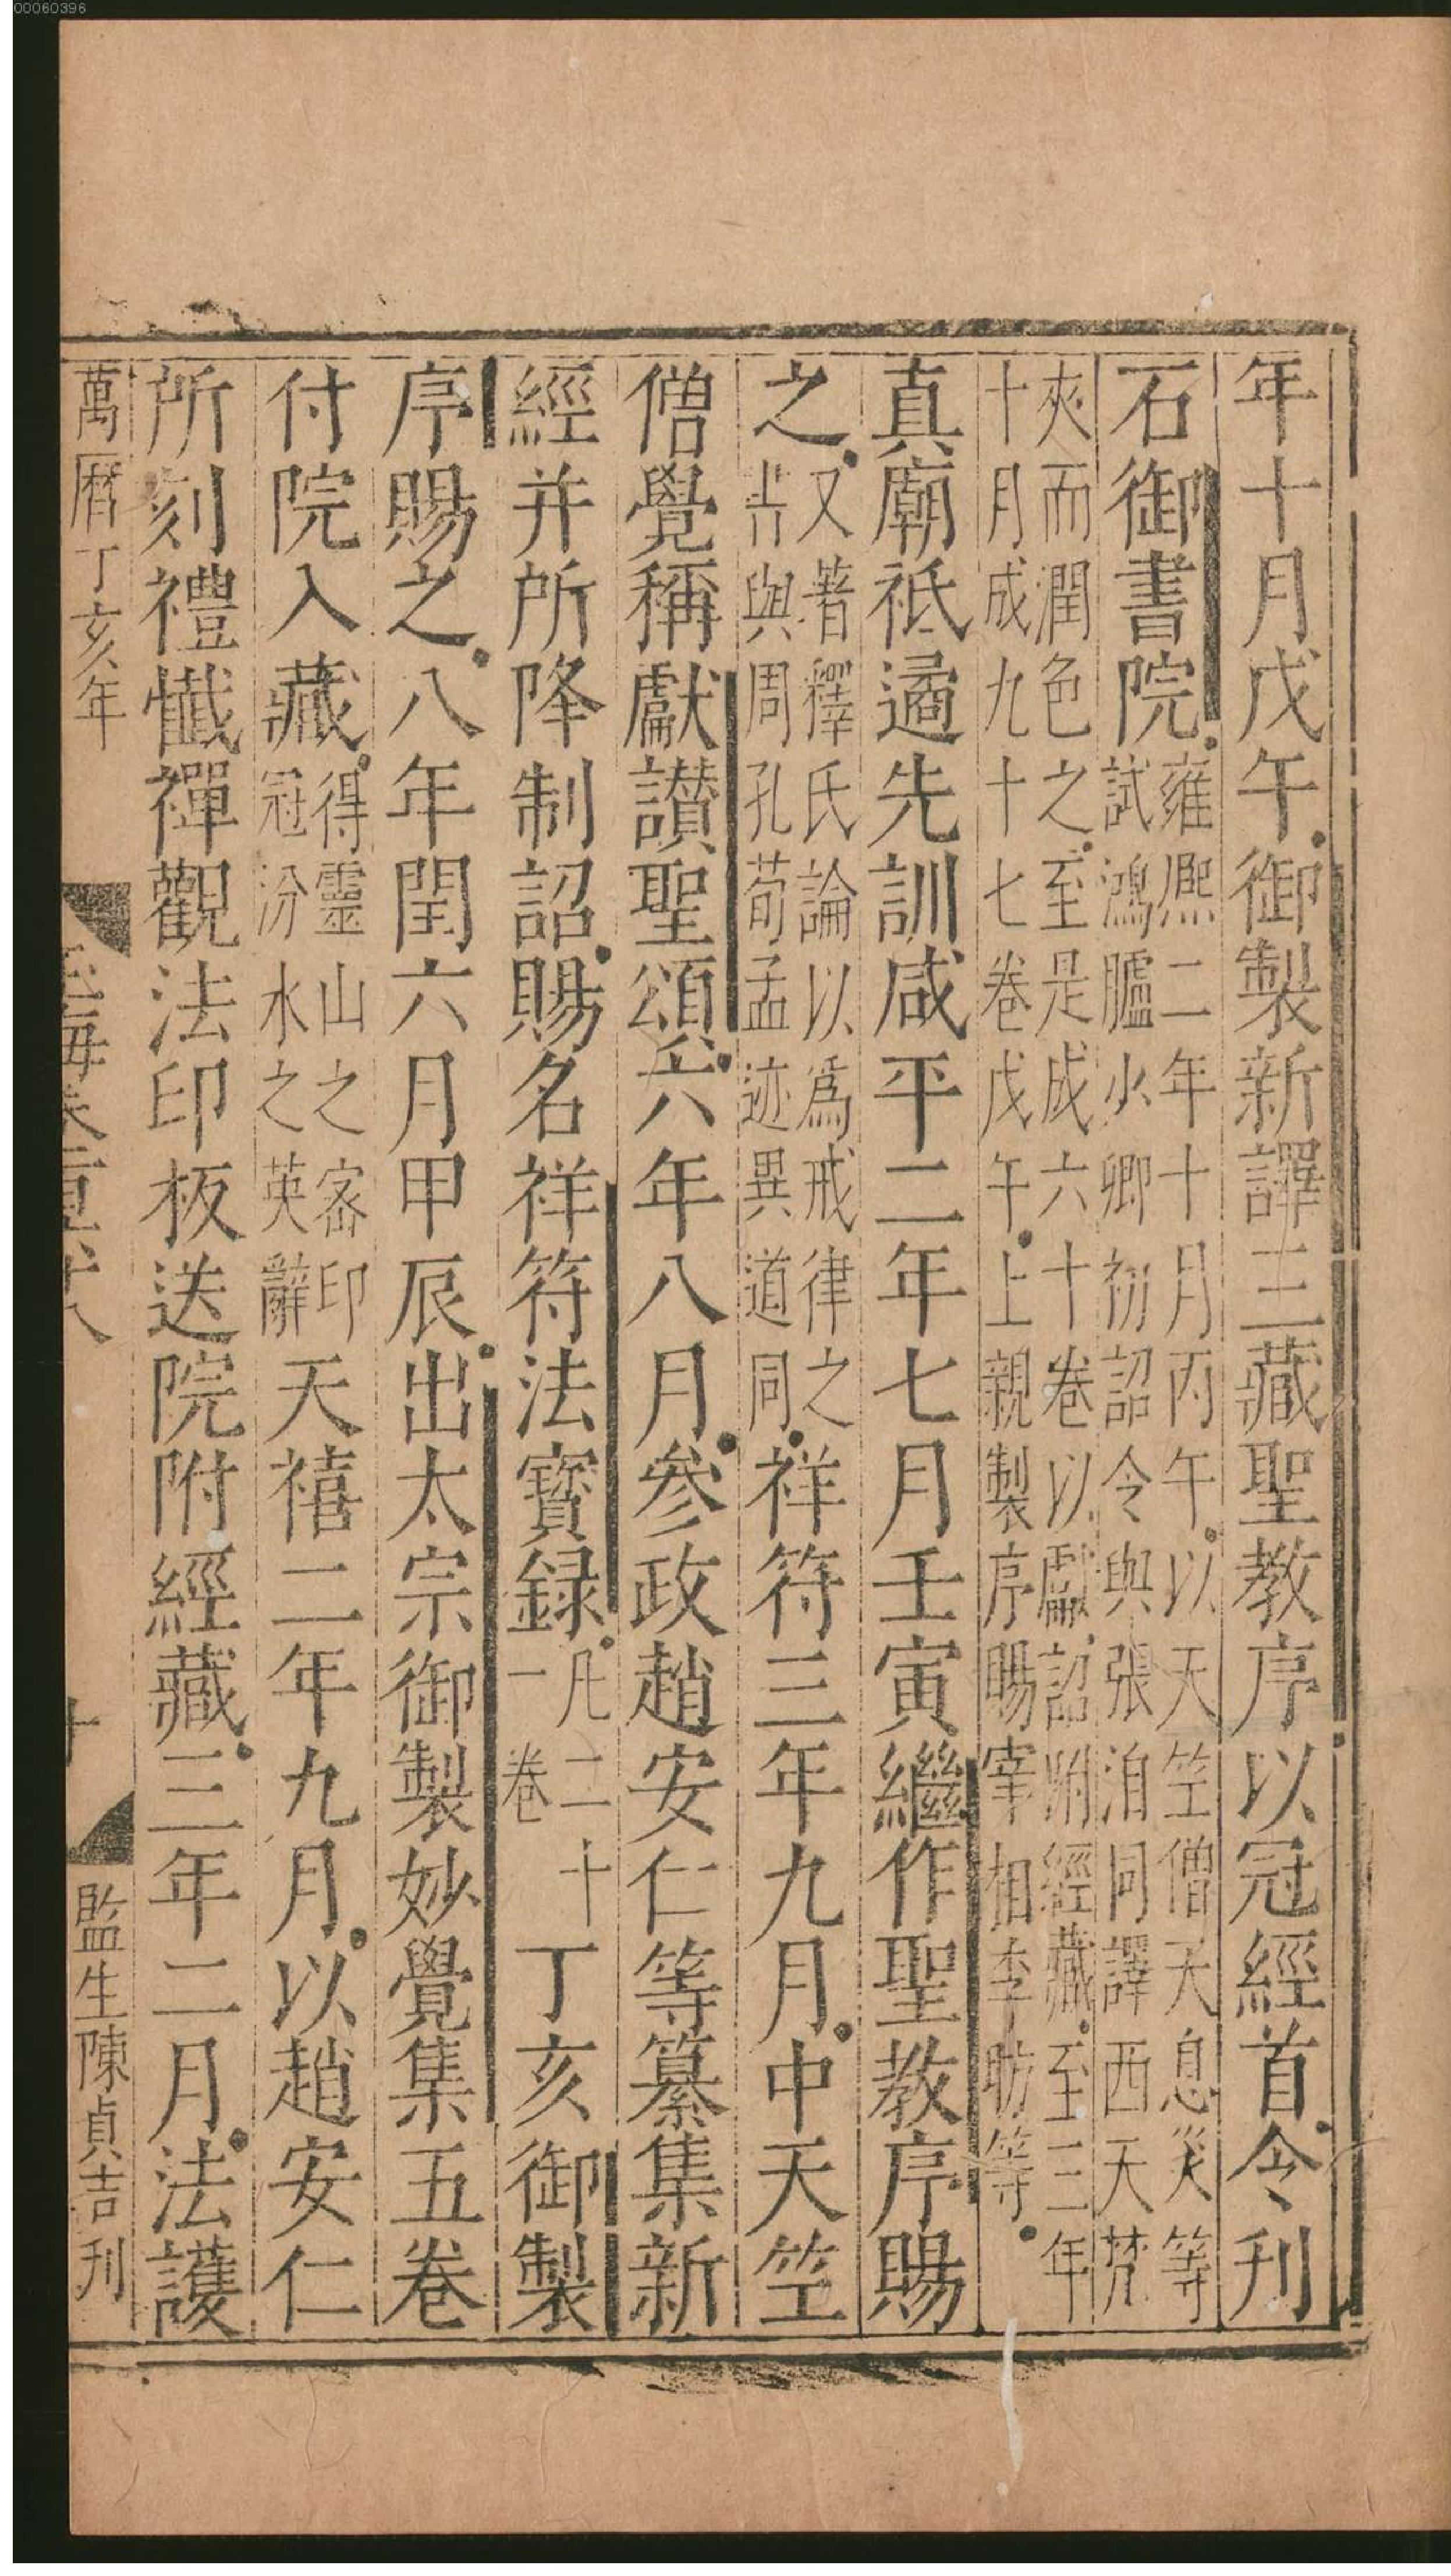 00060396
年十月戊午御製新譯三藏聖教序以冠經首令刊
石御書院
雍熈二年十月丙午以天竺僧天息災等
試鴻臚少卿初詔令與張洎同譯西天梵
夾而潤色之至是成六十卷以獻詔附經藏至三年
十月成九十七卷戊午上親製序賜宰相李昉等
真廟祇遹先訓咸平二年七月壬寅繼作聖教序賜
之
又著釋氏論以爲戒律之
㫖與周孔荀孟迹異道同
祥符三年九月中天竺
僧覺稱獻讃聖頌六年八月參政趙安仁等纂集新
經并所降制詔賜名祥符法寳録
凡二十
一卷
丁亥御製
序賜之八年閏六月甲辰出太宗御製妙覺集五卷
付院入藏
得靈山之宻印
冠汾水之英辭
天禧二年九月以趙安仁
所刻禮懺禪觀法印板送院附經藏三年二月法護
萬曆丁亥年
海卷
十
監生陳貞吉刊